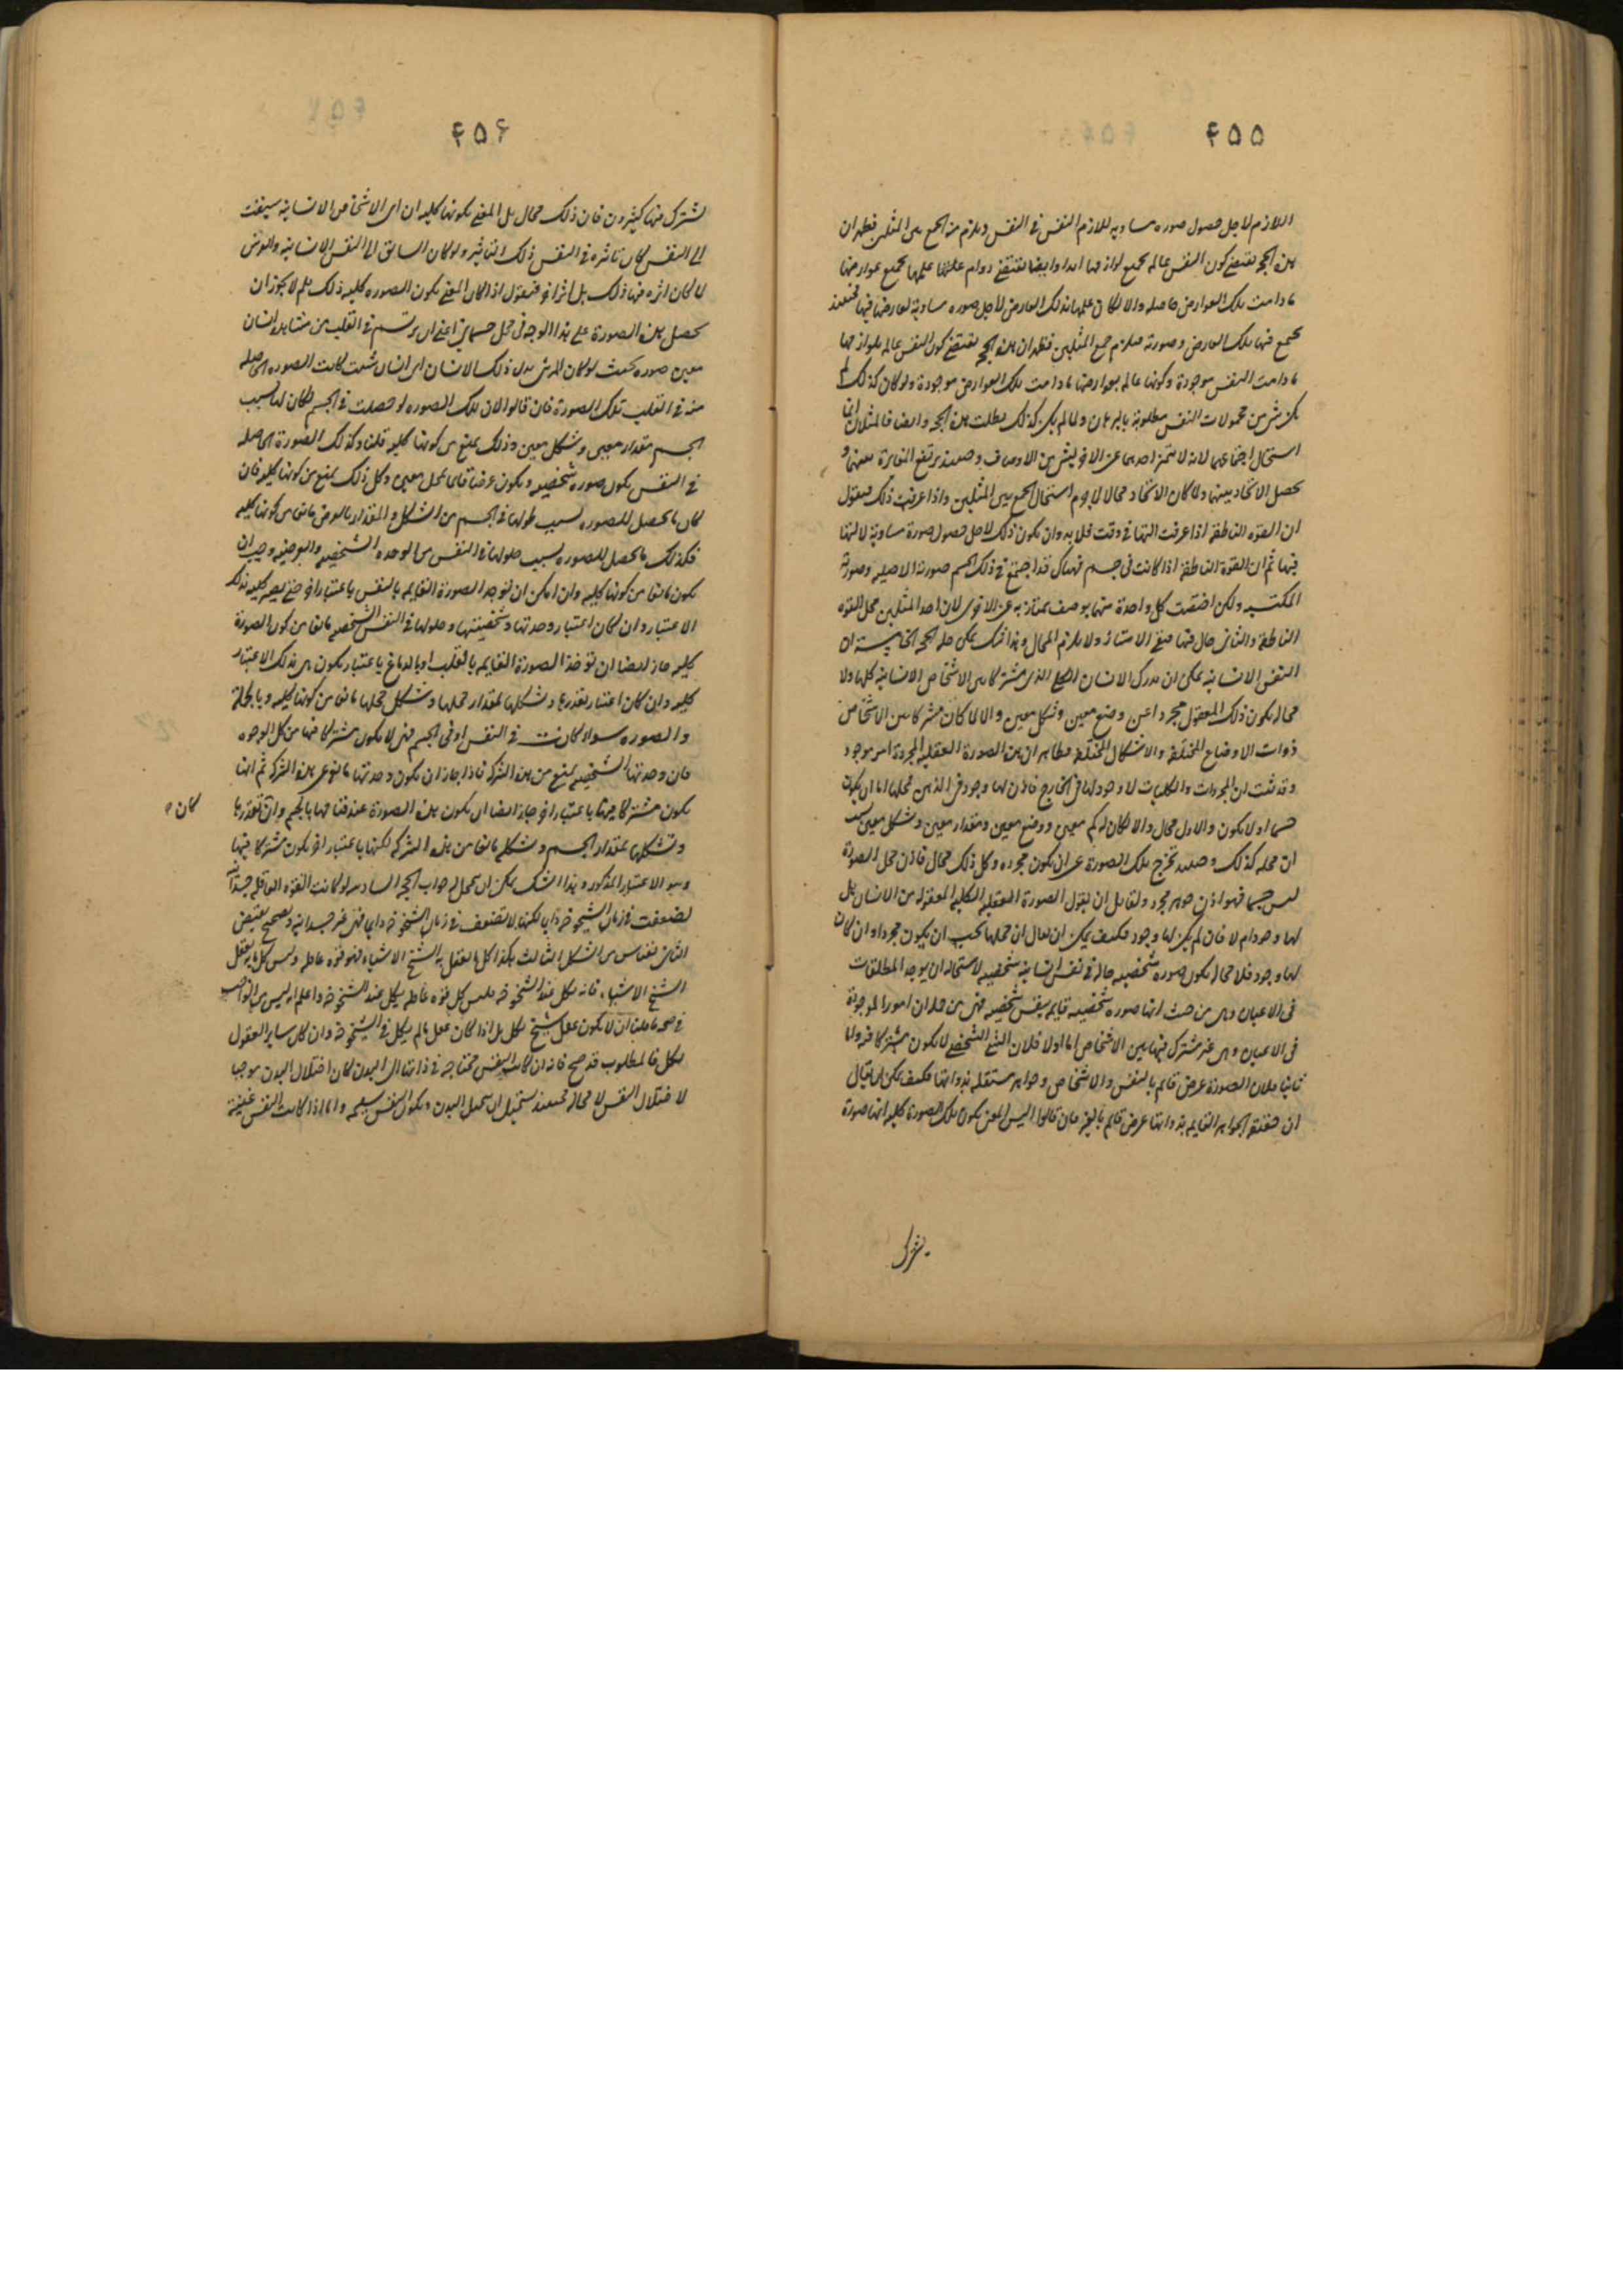 ۴۵۵
اللازم لاجل حصول صوره مساويه للازم النفس فى النفس ويلزم منه الجمع بين المثلين فظهر ان
هذه الحجه تقتضى كون النفس عالمه بجميع لوازمها ابدا وايضا تقتضى دوام علمها بجميع عوارضها
مادامت تلك العوارض حاصله والا لكان علمها بذلك العارض لأجل صوره مساوية لعارضها فيها فحينئذ
يجتمع فيها تلك العارض وصورته فيلزم جمع المثلين فظهر ان هذه الحجه تقتضى كون النفس عالمه بلوازمها
مادامت النفس موجودة وكونها عالمه بعوارضها مادامت تلك العوارض موجودة ولو كان كذلك لم
يكن شئ من محمولات النفس مطلوبة بالبرهان ولما لم يكن كذلك بطلت هذه الحجه وايضا فالمثلان انما
استحال اجتماعهما لانه لا يتميز احدهما عن الاخر بشئ من الاوصاف وحينئذ يرتفع المغايرة بينهما و
يحصل الاتحاد بينهما ولما كان الاتحاد محالا لا جرم استحال الجمع بين المثلين واذا عرفت ذلك فنقول
ان القوه الناطقه اذا عرفت التها فى وقت فلا بد وان يكون ذلك لاجل حصول صورة مساوية لالتها
فيها ثم ان القوة الناطقه اذا كانت فى جسم فهناك قد اجتمع فى ذلك الجسم صورته الاصليه وصورته
المكتسبه ولكن اختصت كل واحدة منهما بوصف يمتاز به عن الاخرى لان احد المثلين محل للقوه
الناطقه والثانى حال فيها فبقى الامتياز ولا يلزم المحال وهذا شك يمكن حله الحجه الخامسه ان
النفس الانسانيه يمكن ان يدرك الانسان الكلى الذى مشتركا بين الاشخاص الانسانيه كلها ولا
محاله يكون ذلك المعقول مجردا عن وضع معين وشكل معين والا لما كان مشتركا بين الاشخاص
ذوات الاوضاع المختلفه والاشكال المختلفه فظاهر ان هذه الصورة العقليه المجردة امر موجود
وقد ثبت ان المجردات والكليات لا وجود لها فى الخارج فاذن لها وجود فى الذهن فمحلها اما ان يكون
جسما او لا يكون والاول محال والا لكان له كم معين ووضع معين ومقدار معين وشكل معين بسبب
ان محله كذلك وحينئذ تخرج تلك الصورة عن ان يكون مجرده وكل ذلك محال فاذن محل الصورة
ليس جسما فهو اذن جوهر مجرد ولقائل ان يقول الصورة العقليه الكليه المعقوله من الانسان هل
لها وجود ام لا فان لم يكن لها وجود فكيف يمكن ان يقال ان محلها يجب ان يكون مجردا وان كان
لها وجود فلا محاله يكون صوره شخصيه حاله فى نفس انسانيه شخصيه لاستحاله ان يوجد المطلقات
فى الاعيان وهى من حيث انها صوره شخصيه قايمه بنفس شخصيه فهى من
فى الاعيان وهى غير مشترك فيها بين الاشخاص اما اولا فلان الشئ الشخصى لا يكون مشتركا فيه واما
ثانيا فلان الصورة عرض قائم بالنفس والاشخاص وجواهر مستقله بذواتها فكيف يمكن ان يقال
ان حقيقة الجواهر القايمه بذواتها عرض قائم بالغير فان قالوا ليس المعنى بكون تلك الصورة كليه انها صورة
۴۵۶
يشترك فيها كثيرون فان ذلك محال بل المعنى بكونها كليه ان اى الاشخاص الانسانيه سبقت
الى النفس كان تاثيره فى النفس ذلك التاثير ولو كان السابق الى النفس الانسانيه والفرس
لما كان اثره فيها ذلك بل اثرا اخر فنقول اذا كان المعنى بكون الصوره كليه ذلك فلم لا يجوز ان
تحصل هذه الصورة على هذا الوجه فى محل جسمانى اعنى ان يرتسم فى القلب من مشاهده انسان
معين صوره بحيث لو كان المرئى بدل ذلك الانسان اى انسان شئت كانت الصوره الحاصله
منه فى القلب تلك الصورة فان قالوا لان تلك الصوره لو حصلت فى الجسم لكان لها بسبب
الجسم مقدار معين وشكل معين وذلك يمنع من كونها كليه قلنا وكذلك الصورة الحاصله
فى النفس يكون صوره شخصيه ويكون عرضا قائما بمحل معين وكل ذلك يمنع من كونها كليه فان
كان ما يحصل للصوره بسبب حلولها فى الجسم من الشكل والمقدار بالعرض مانعا من كونها كليه
فكذلك ما يحصل للصوره بسبب حلولها فى النفس من الوحده الشخصيه والعرضيه وجب ان
يكون مانعا من كونها كليه وان امكن ان توجد الصورة القايمه بالنفس باعتبار اخر حتى يصير كليه بذلك
الاعتبار وان كان اعتبار وحدتها وشخصيتها وحلولها فى النفس الشخصيه مانعا من كون الصورة
كليه جاز ايضا ان توخذ الصورة القايمه بالقلب او بالدماغ باعتبار يكون هى بذلك الاعتبار
كليه وان كان اعتبار تقدرها وتشكلها بمقدار محلها وشكل محلها مانعا من كونها كليه وبالجملة
والصوره سواء كانت فى النفس او فى الجسم فهى لا يكون مشتركا فيها من كل الوجوه
فان وحدتها الشخصيه يمنع من هذه الشركه فاذا جاز ان يكون وحدتها مانعة عن هذه الشركه ثم انها
يكون مشتركا فيها باعتبار اخر جاز ايضا ان يكون هذه الصورة عند قيامها بالجسم وان تقدرها
كان
وتشكلها بمقدار الجسم وشكله مانعا من هذه الشركه لكنها باعتبار اخر يكون مشتركا فيها
وهو الاعتبار المذكور وهذا الشك يمكن ان يجعل جواب الحجه السادسه لو كانت القوه العاقله جسدانيه
لضعفت فى زمان الشيخوخه دايما لكنها لا تضعف فى زمان الشيخوخه دايما فهى غير جسدانيه
الثانى بقياس من الشكل الثالث هكذا كل ما يعقل به الشيخ الاشياء فهو قوه عاقله وليس كل ما يعقل
الشيخ الاشياء فانه يكل عند الشيخوخه فليس كل قوه عاقله يكل عند الشيخوخه واعلم انه ليس من الواجب
فى صحه ما قلنا ان لا يكون عقل شيخ يكل بل اذا كان عقل ما لم يكل فى الشيخوخه وان كان ساير العقول
يكل فالمطلوب قد صح فانه ان كانت النفس محتاجه فى ذاتها الى البدن لكان اختلال البدن موجبا
لاختلال النفس لا محاله فحينئذ يستحيل ان يختل البدن ويكون النفس سليمه واما اذا كانت النفس غنية
يشترك